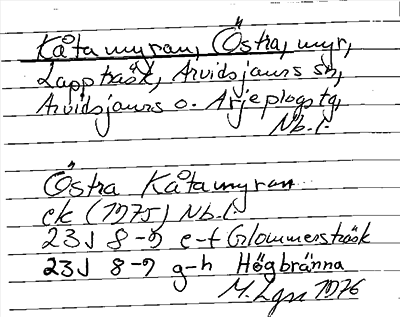 Kåtamyran, Östra, myr,
Lappträsk, Arvidsjaurs sn,
Arvidsjaurs o. Arjeplogs tg,
Nb. l.
Östra Kåtamyran
ek (1975) Nb. l.
23J 8-9 e-f Glommersträsk
23J 8-9 g-h Högbränna
M. Lgn 1976